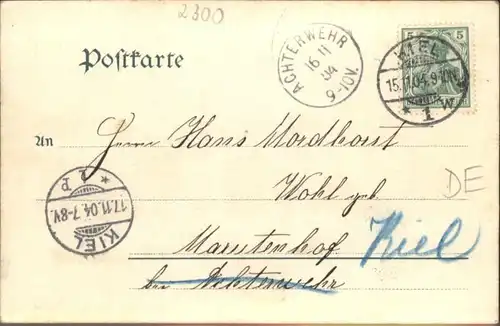 2300
Postkarte
ACHTERWEHR
16 11
04
9-10V.
5 5
KIEL
15.11.04.9-10N.
* 1 W
An
Herrn Hans Mordhorst
Wohl geb.
DE
Marutenhof Kiel
bei Achterwehr
KIEL
17.11.04.7-8V.
* P